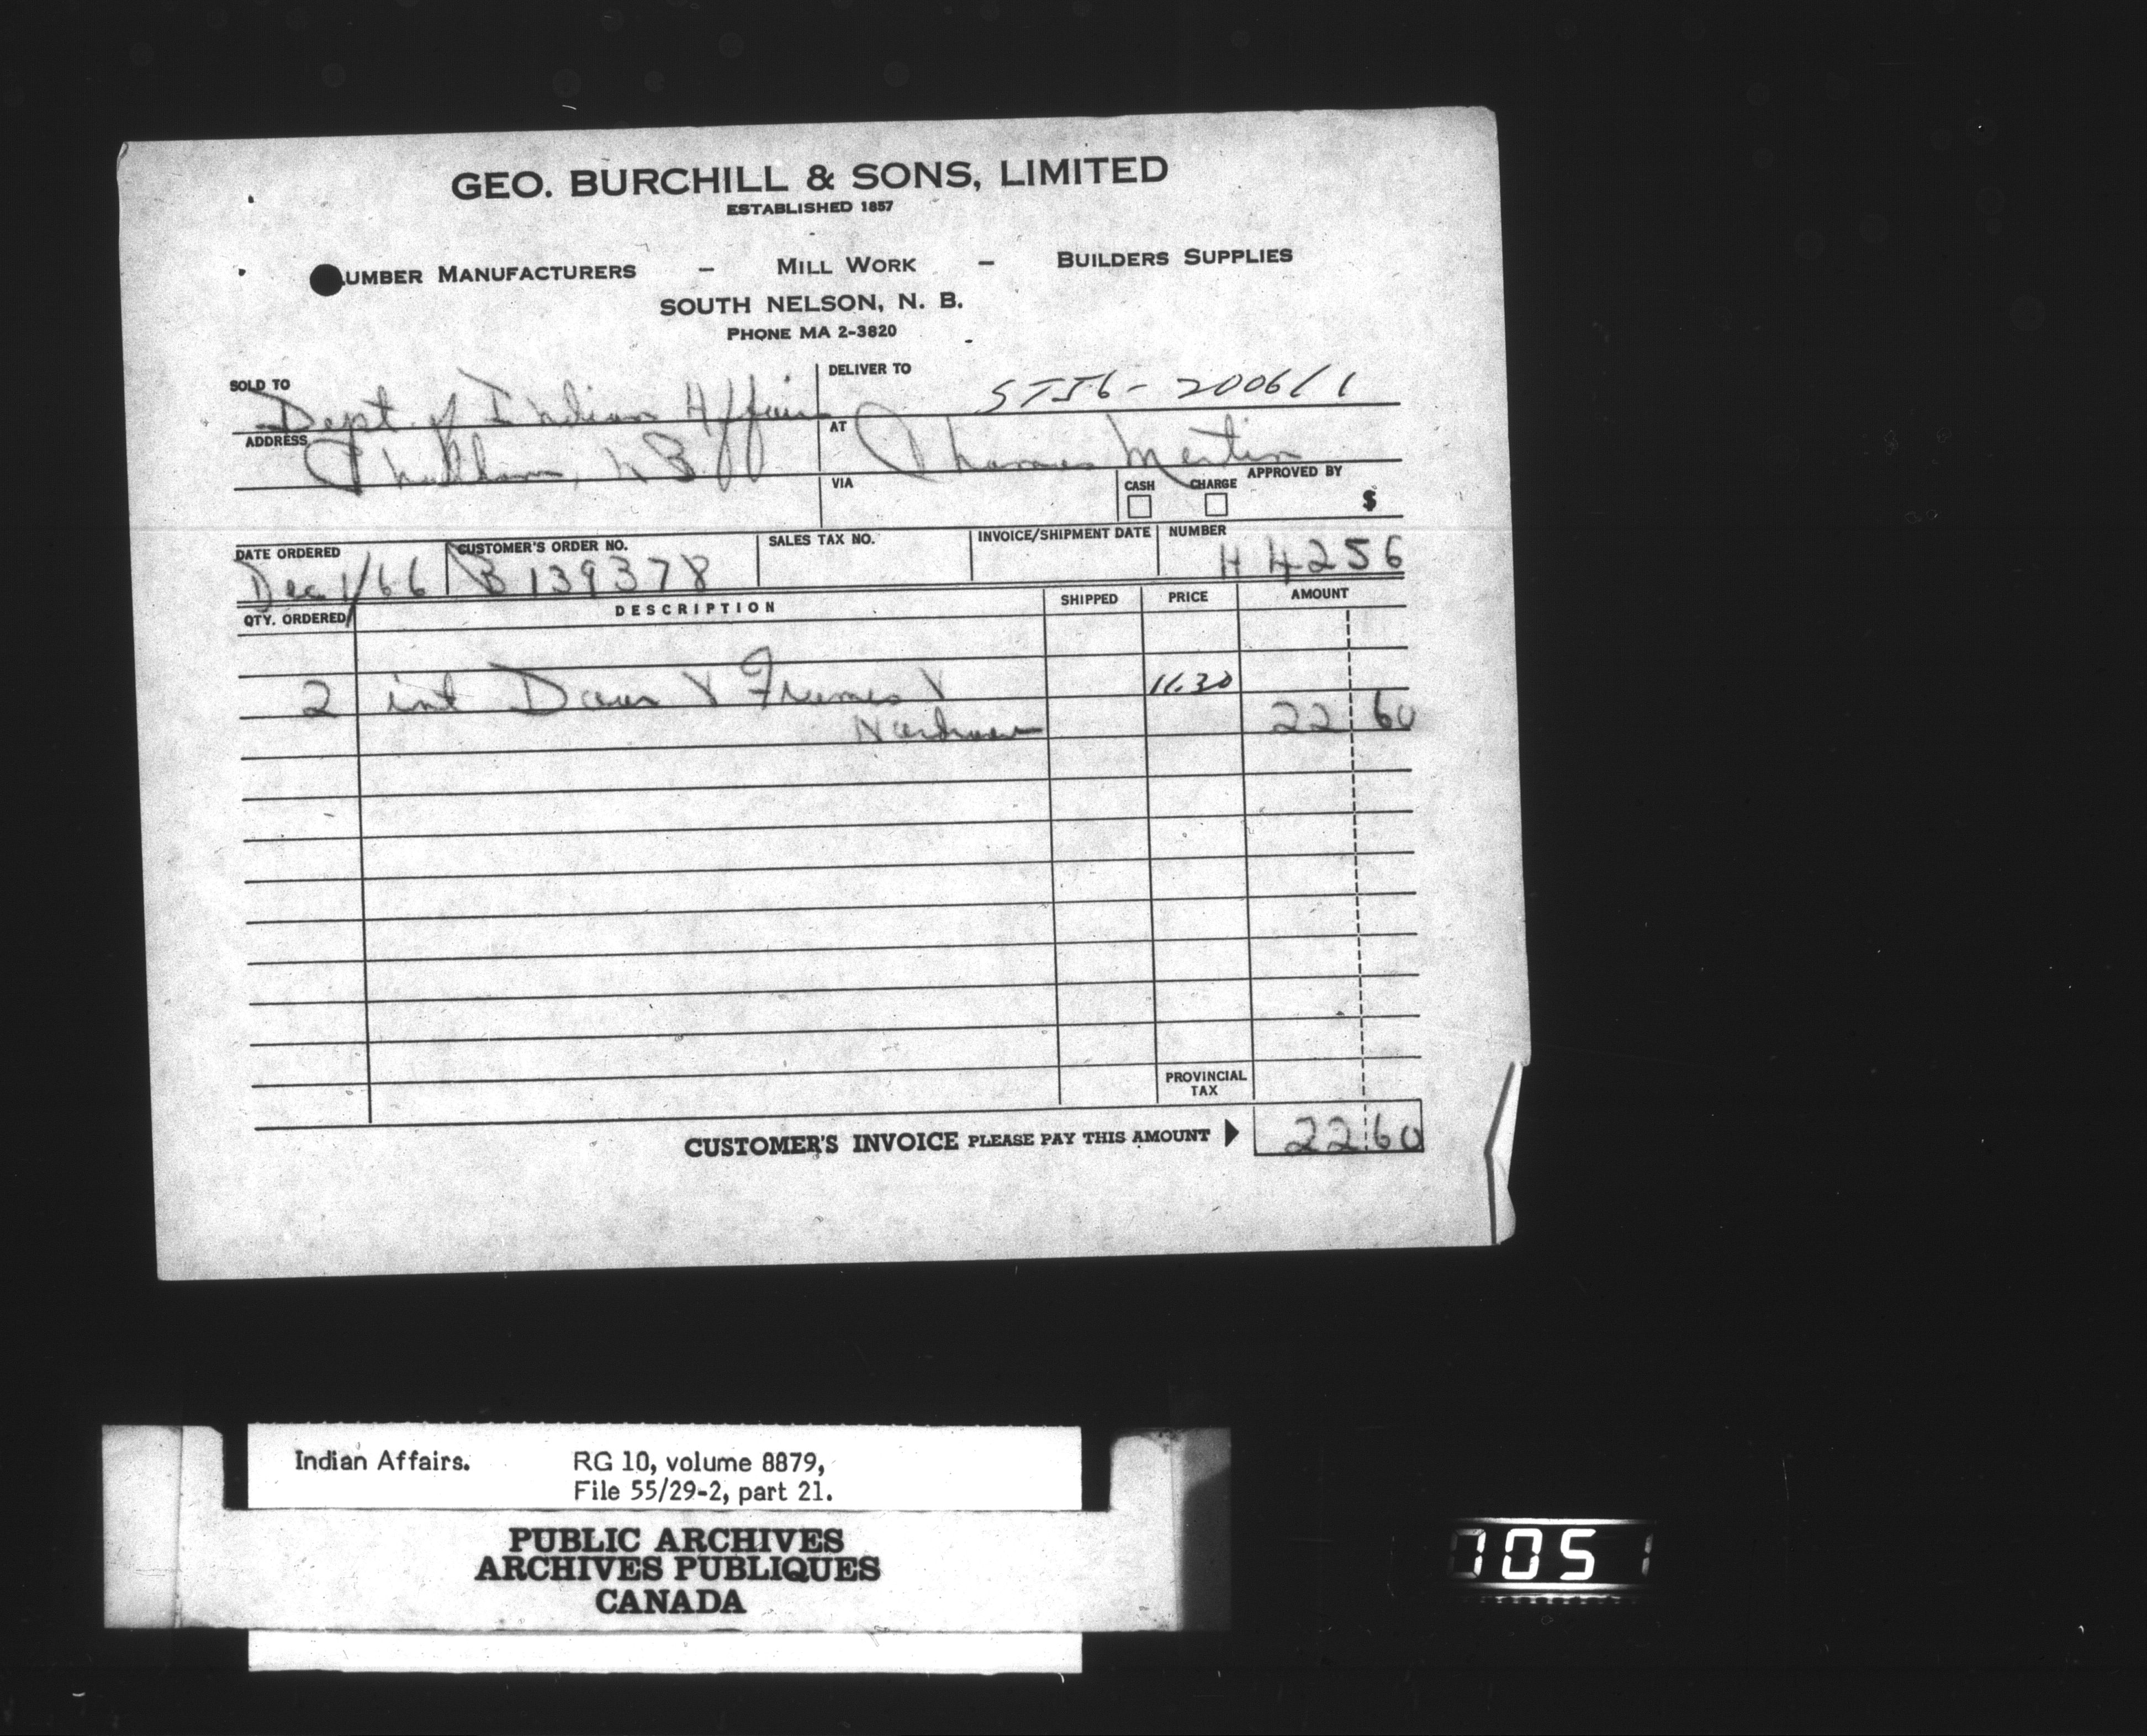 GEO. BURCHILL & SONS, LIMITED
ESTABLISHED 1857
UMBER MANUFACTURERS - MILL WORK - BUILDERS SUPPLIES
SOUTH NELSON, N. B.
PHONE MA 2-3820
SOLD TO Dept. of Indian Affairs
DELIVER TO 2006/1
ADDRESS Chatham, NB
AT Thomas Martin
VIA
CASH CHARGE APPROVED BY $
DATE ORDERED CUSTOMER'S ORDER NO. SALES TAX NO. INVOICE/SHIPMENT DATE NUMBER
Dec 1/66 B 139378 H 4256
QTY. ORDERED DESCRIPTION SHIPPED PRICE AMOUNT
2 int Doors & Frames & 11.30
Hardware 22 60
PROVINCIAL TAX
CUSTOMER'S INVOICE PLEASE PAY THIS AMOUNT 22 60
Indian Affairs. RG 10, volume 8879,
File 55/29-2, part 21.
PUBLIC ARCHIVES
ARCHIVES PUBLIQUES
CANADA
7051